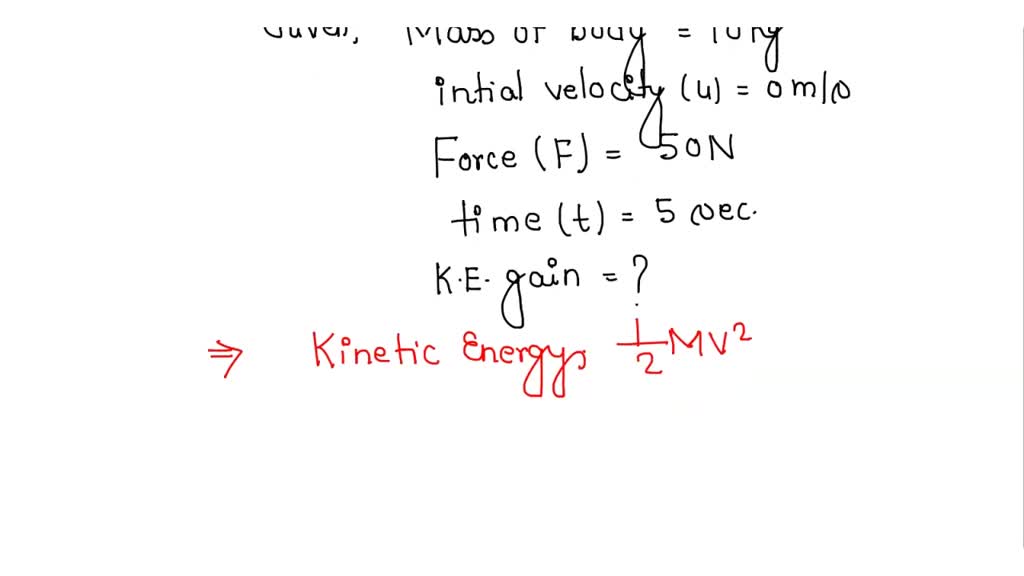 Given, Mass of body = 10 kg
intial velocity (u) = 0 m/s
Force (F) = 50N
time (t) = 5 sec.
K.E. gain = ?
⇒ Kinetic Energy, 1/2 MV²